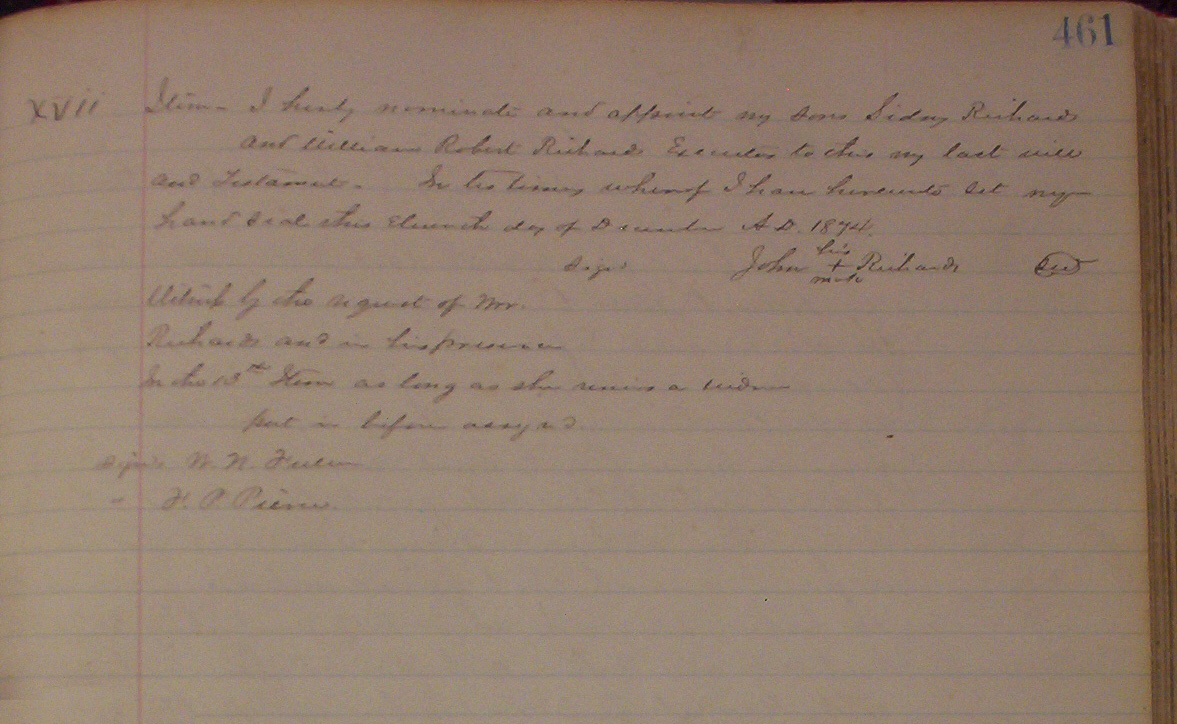 461
XVII Item - I hereby nominate and appoint my sons Sidney Richards
and William Robert Richards Executors to this my last will
and Testament. In testimony whereof I have hereunto set my
hand & seal this Eleventh day of December A.D. 1874.
Signed John his + mark Richards Seal
Witness by the request of Mr.
Richards and in his presence
In the 13th Item as long as she remains a widow
put in before assigned
Signed W. N.
" F. P. Pierce